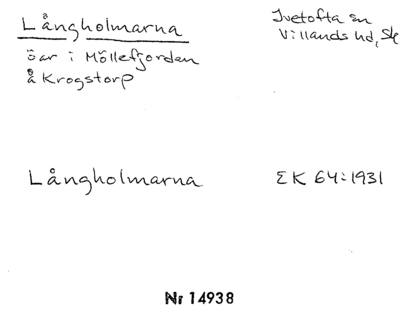 Långholmarna
öar i Möllefjorden
å Krogstorp
Ivetofta sn
Villands hd, Sk
Långholmarna
EK 64:1931
Nr 14938